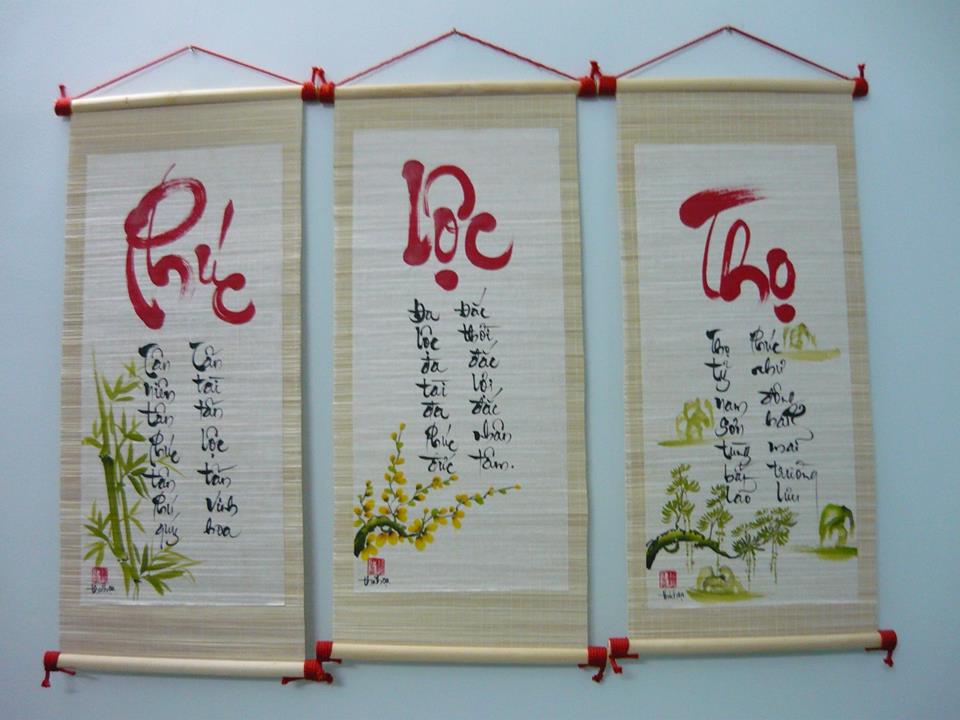 Phúc
Tân niên tân phúc tân phú quý
Tấn tài tấn lộc tấn vinh hoa
Lộc
Đa lộc đa tài đa phúc đức
Đắc thời đắc lợi đắc nhân tâm.
Thọ
Thọ tỷ nam sơn tùng bất lão
Phúc như đông hải mãi trường lưu